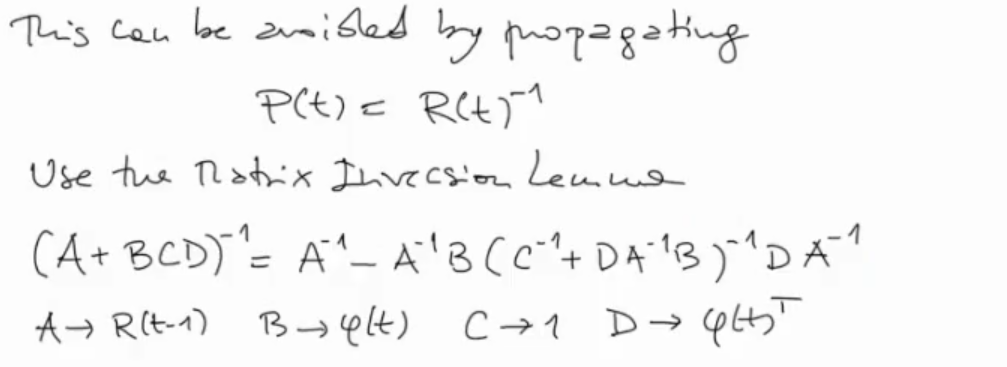 This can be avoided by propagating
P(t) = R(t)⁻¹
Use the Matrix Inversion Lemma
(A + BCD)⁻¹ = A⁻¹ - A⁻¹B(C⁻¹ + DA⁻¹B)⁻¹DA⁻¹
A → R(t-1) B → φ(t) C → 1 D → φ(t)ᵀ